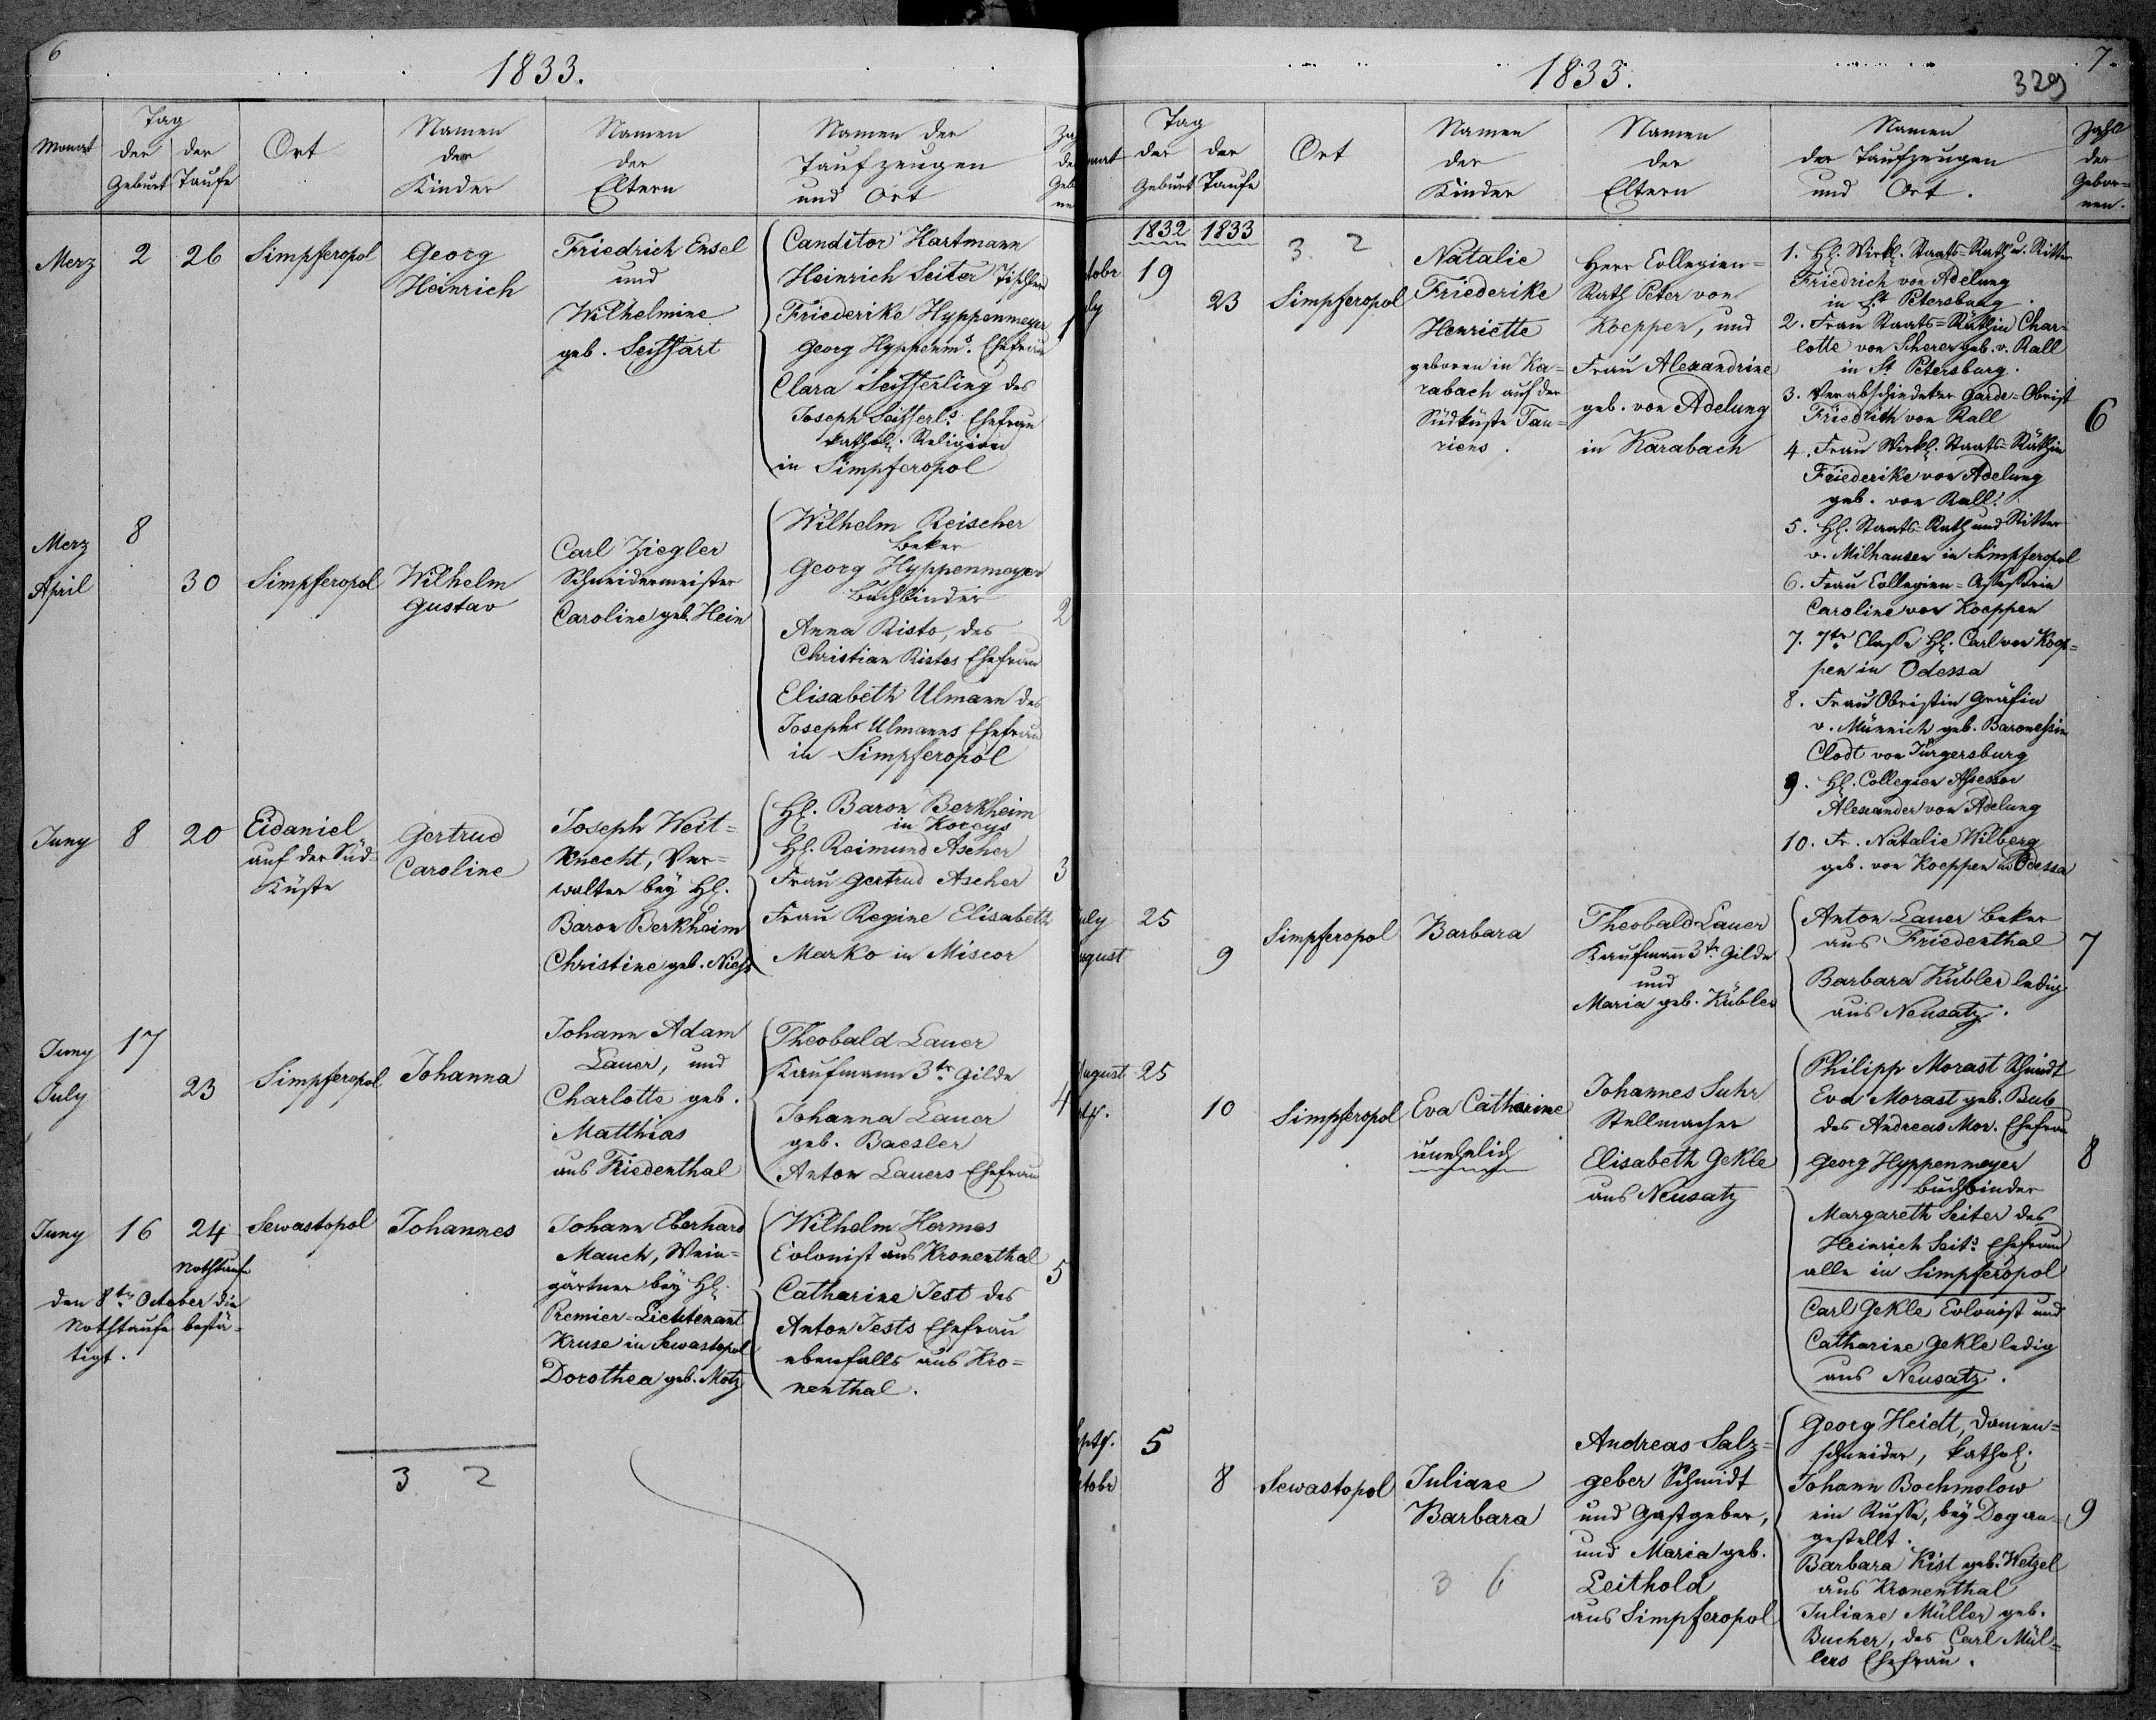 6
1833.
Monat
Tag
der Geburt
der Taufe
Ort
Namen
der
Kinder
Namen
der
Eltern
Namen der
Taufzeugen
und Ort
Merz
2
26
Simpferopol
Georg
Heinrich
Friedrich Ensel
und
Wilhelmine
geb. Seiffart
Canditor Hartmann
Heinrich Seiter Tischler
Friederike Hyppenmeyer
Georg Hyppenm. Ehefrau
Clara Seifferling des
Joseph Seifferl. Ehefrau
kathol. Religion
in Simpferopol
1
Merz
8
April
30
Simpferopol
Wilhelm
Gustav
Carl Ziegler
Schneidermeister
Caroline geb. Hein
Wilhelm Reischer
Beker
Georg Hyppenmeyer
Buchbinder
Anna Risto, des
Christian Ristos Ehefrau
Elisabeth Ulmann des
Joseph Ulmanns Ehefrau
in Simpferopol
2
Juny
8
20
Eidaniel
auf der Süd-
Küste
Gertrud
Caroline
Joseph Weit-
knecht, Ver-
walter bey H.
Baron Berkheim
Christine geb.
H. Baron Berkheim
in
H. Reimund Ascher
Frau Gertrud Ascher
Frau Regine Elisabeth
Marko in Miscor
3
Juny
17
July
23
Simpferopol
Johanna
Johann Adam
Lauer, und
Charlotte geb.
Matthias
aus Friedenthal
Theobald Lauer
Kaufmann 3tr Gilde
Johanna Lauer
geb. Baesler
Anton Lauers Ehefrau
4
Juny
16
24
Nothtaufe
den 8tn October die
Nothtaufe bestä-
tigt.
Sewastopol
Johannes
Johann Eberhard
Mauch, Wein-
gärtner bey H.
Premier-Lieutenant
Kruse in Sewastopol
Dorothea geb. Motz
Wilhelm Hermes
Colonist aus Kronenthal
Catharine Jest des
Anton Jests Ehefrau
ebenfalls aus Kro-
nenthal.
5
3 2
7
1833.
329
Tag
der Geburt
der Taufe
Ort
Namen
der
Kinder
Namen
der
Eltern
Namen
der Taufzeugen
und Ort.
Zahl
der
Gebor-
nen.
1832
1833
3. 2
tobr
19
ly
23
Simpferopol
Natalie
Friederike
Henriette
geboren in Ka-
rabach auf der
Südküste Tau-
riens.
Herr Collegien-
Rath Peter von
Koeppen, und
Frau Alexandrine
geb. von Adelung
in Karabach
1. H. Wirkl. Staats-Rath u. Ritter
Friedrich von Adelung
in St Petersburg.
2. Frau Staats-Räthin Char-
lotte von Scherer geb. v. Rall
in St Petersburg.
3. Verabschiedeter Garde-Obrist
Friedrich von Rall
4. Frau Wirkl. Staats-Räthin
Friederike von Adelung
geb. von Rall.
5. H. Staats-Rath und Ritter
v. Milhausen in Simpferopol
6. Frau Collegien-Assessorin
Caroline von Koeppen
7. 7tr Classe H. Carl von Koep-
pen in Odessa
8. Frau Obristin Gräfin
v. Münnich geb. Baronessin
Clodt von Jürgersburg
9. H. Collegien Assessor
Alexander von Adelung
10. Fr. Natalie Wilberg
geb. von Koeppen in Odessa
6
uly
25
ugust
9
Simpferopol
Barbara
Theobald Lauer
Kaufmann 3tr Gilde
und
Maria geb. Kübler
Anton Lauer Beker
aus Friedenthal
Barbara Kübler ledig
aus Neusatz.
7
ugust
25
10
Simpferopol
Eva Catharine
unehelich
Johannes Suhr
Stellmacher
Elisabeth Gekle
aus Neusatz
Philipp Morast Schmidt
Eva Morast geb. Bub
des Andreas Mor. Ehefrau
Georg Hyppenmeyer
Buchbinder
Margareth Seiter des
Heinrich Seits Ehefrau
alle in Simpferopol
Carl Gekle Colonist und
Catharine Gekle ledig
aus Neusatz.
8
5
tobr
8
Sewastopol
Juliane
Barbara
3 6
Andreas Salz-
geber Schmidt
und Gastgeber,
und Maria geb.
Leithold
aus Simpferopol
Georg Heidt, Damen-
schneider, kathol.
Johann Bochmolow
ein Russe, bey Dog an-
gestellt.
Barbara Kist geb. Wetzel
aus Kronenthal
Juliane Müller geb.
Bucher, des Carl Mül-
lers Ehefrau.
9